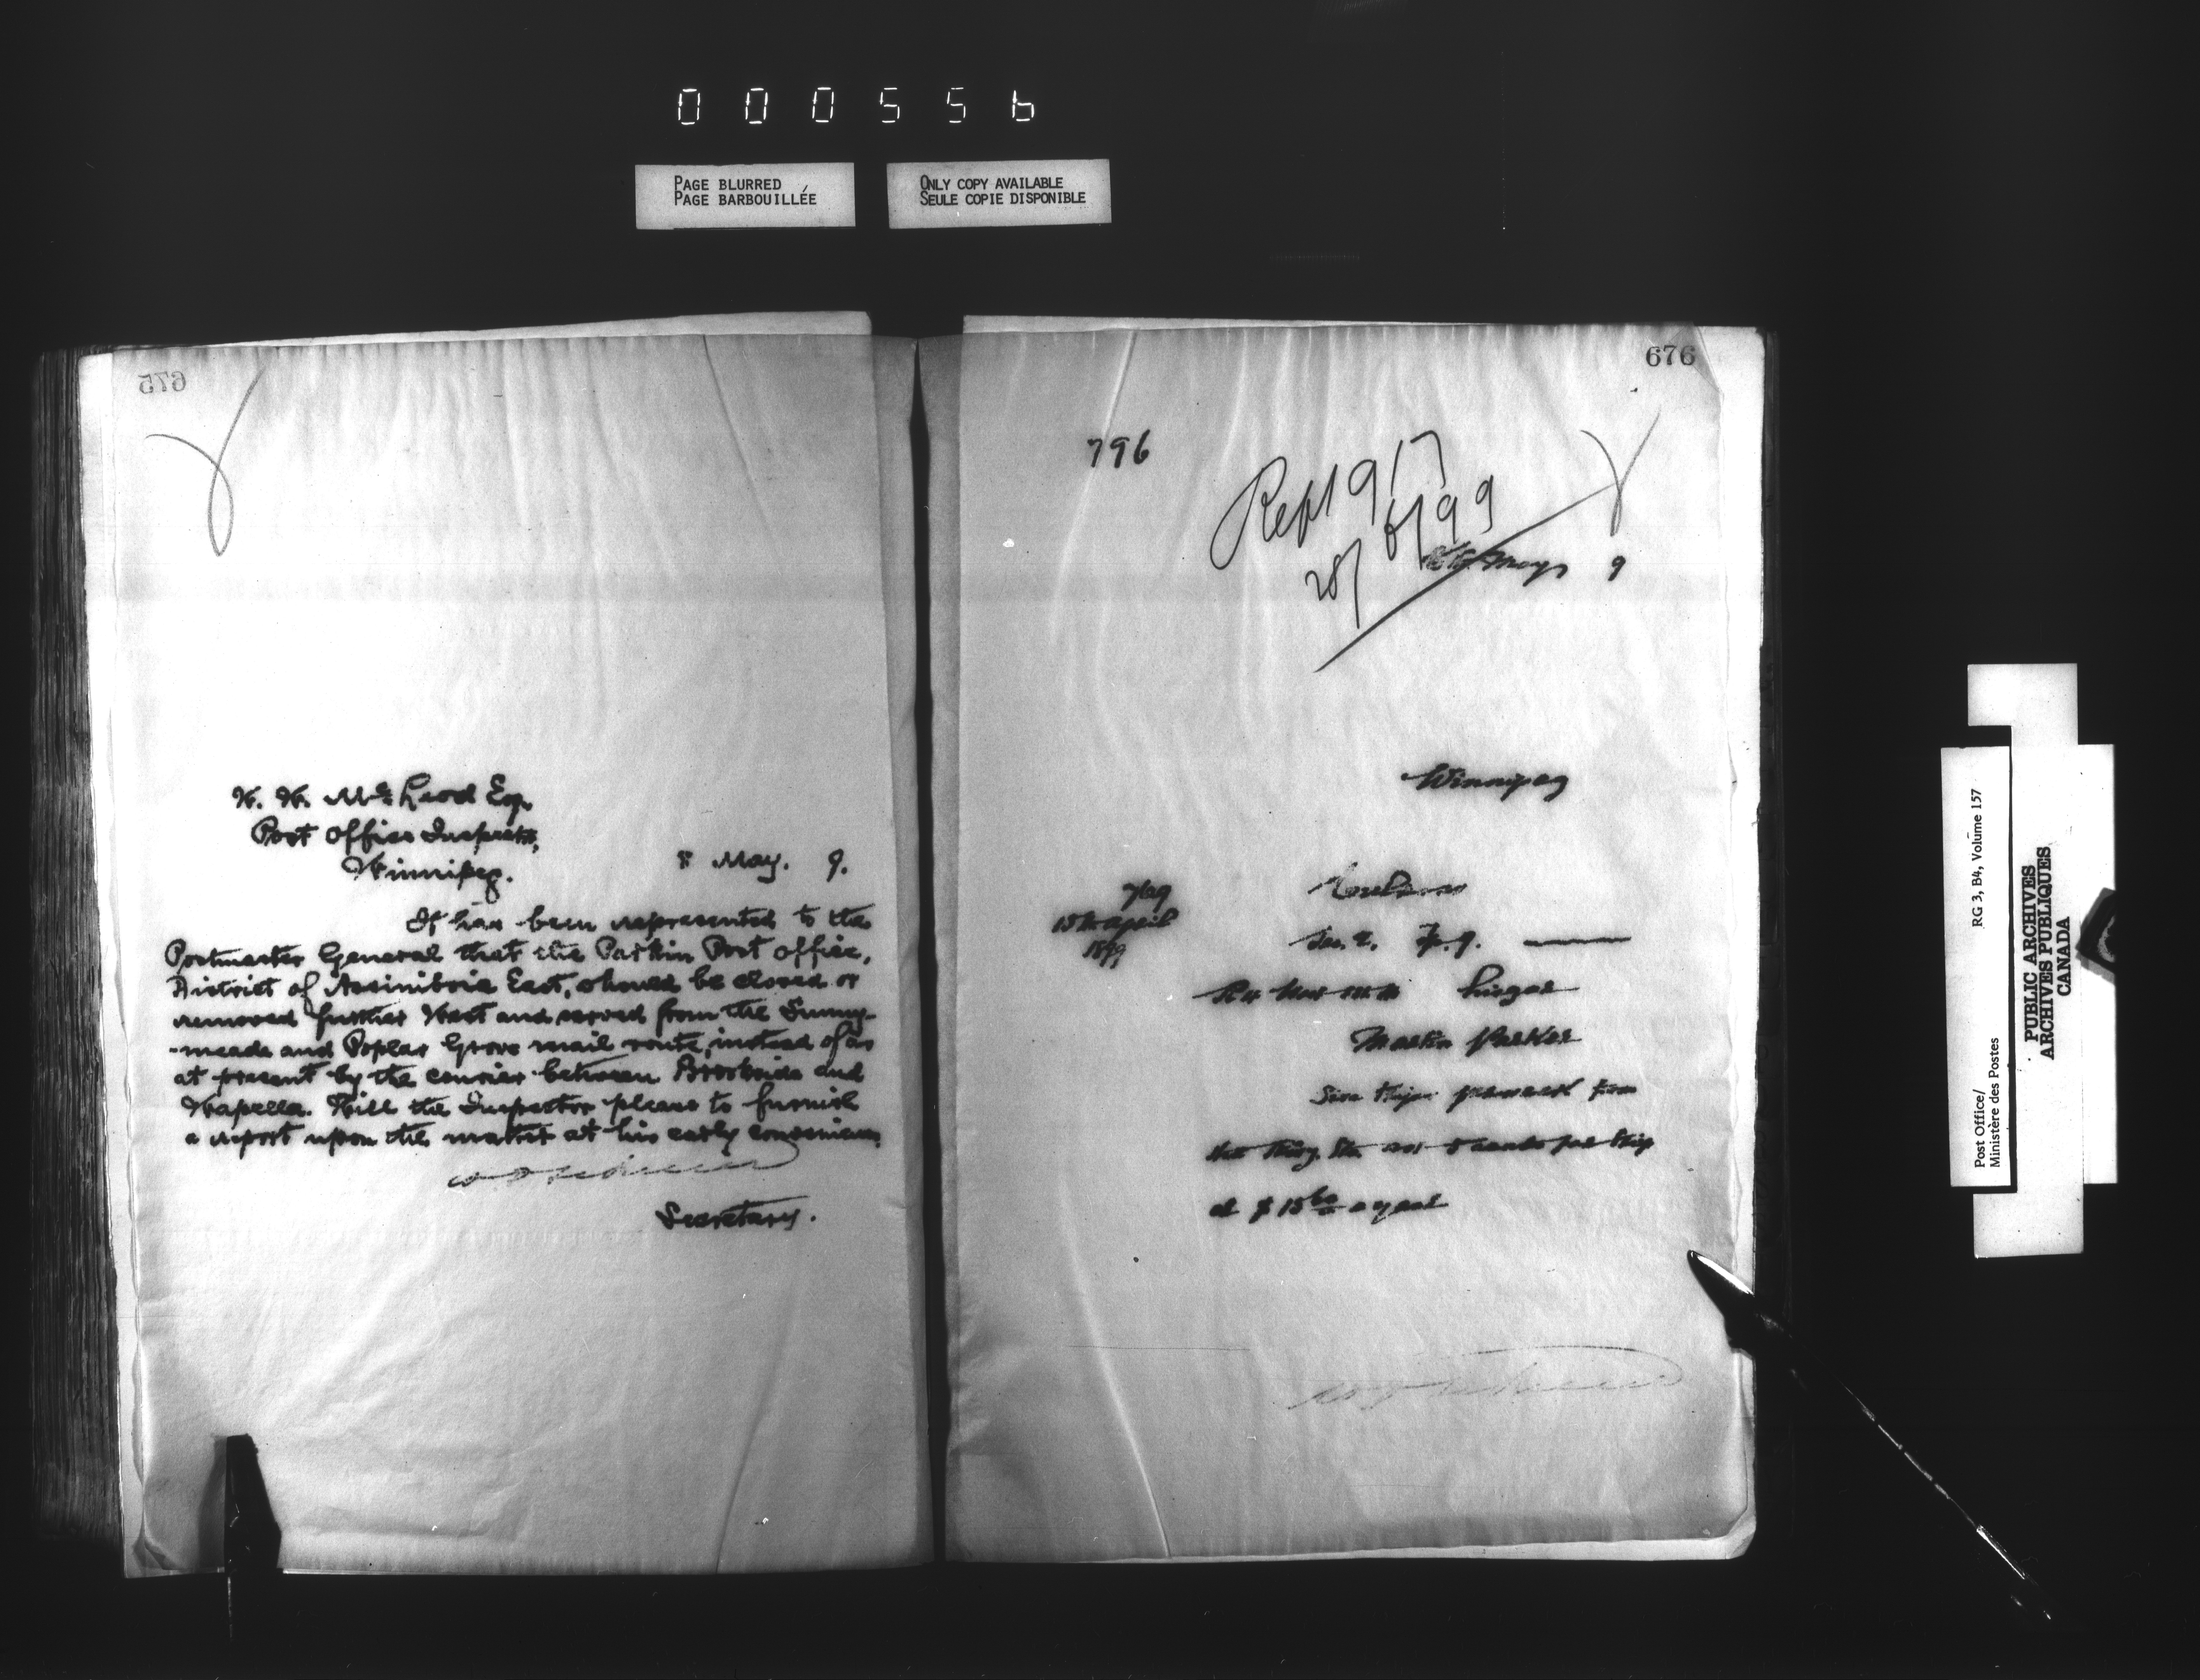 000556
PAGE BLURRED
PAGE BARBOUILLÉE
ONLY COPY AVAILABLE
SEULE COPIE DISPONIBLE
675
W. W. McLeod Esq.
Post Office Inspector,
Winnipeg.
8 May. 9.
It has been represented to the
Postmaster General that the Parkin Post Office,
District of Assiniboia East, should be closed or
removed further West and served from the Sunny-
-meade and Poplar Grove mail route, instead of as
at present by the courier between Brookside and
Wapella. Will the Inspector please to furnish
a report upon the matter at his early convenience.
Secretary.
676
796
Rept 917
28/6/99
May 9
Winnipeg
749
15th April
1899
Sec. 2. Tp. 9.
Lisgar
Martin Parker
trips per week from
cents per trip
at $15 60 a year
Post Office/
Ministère des Postes
RG 3, B4, Volume 157
PUBLIC ARCHIVES
ARCHIVES PUBLIQUES
CANADA